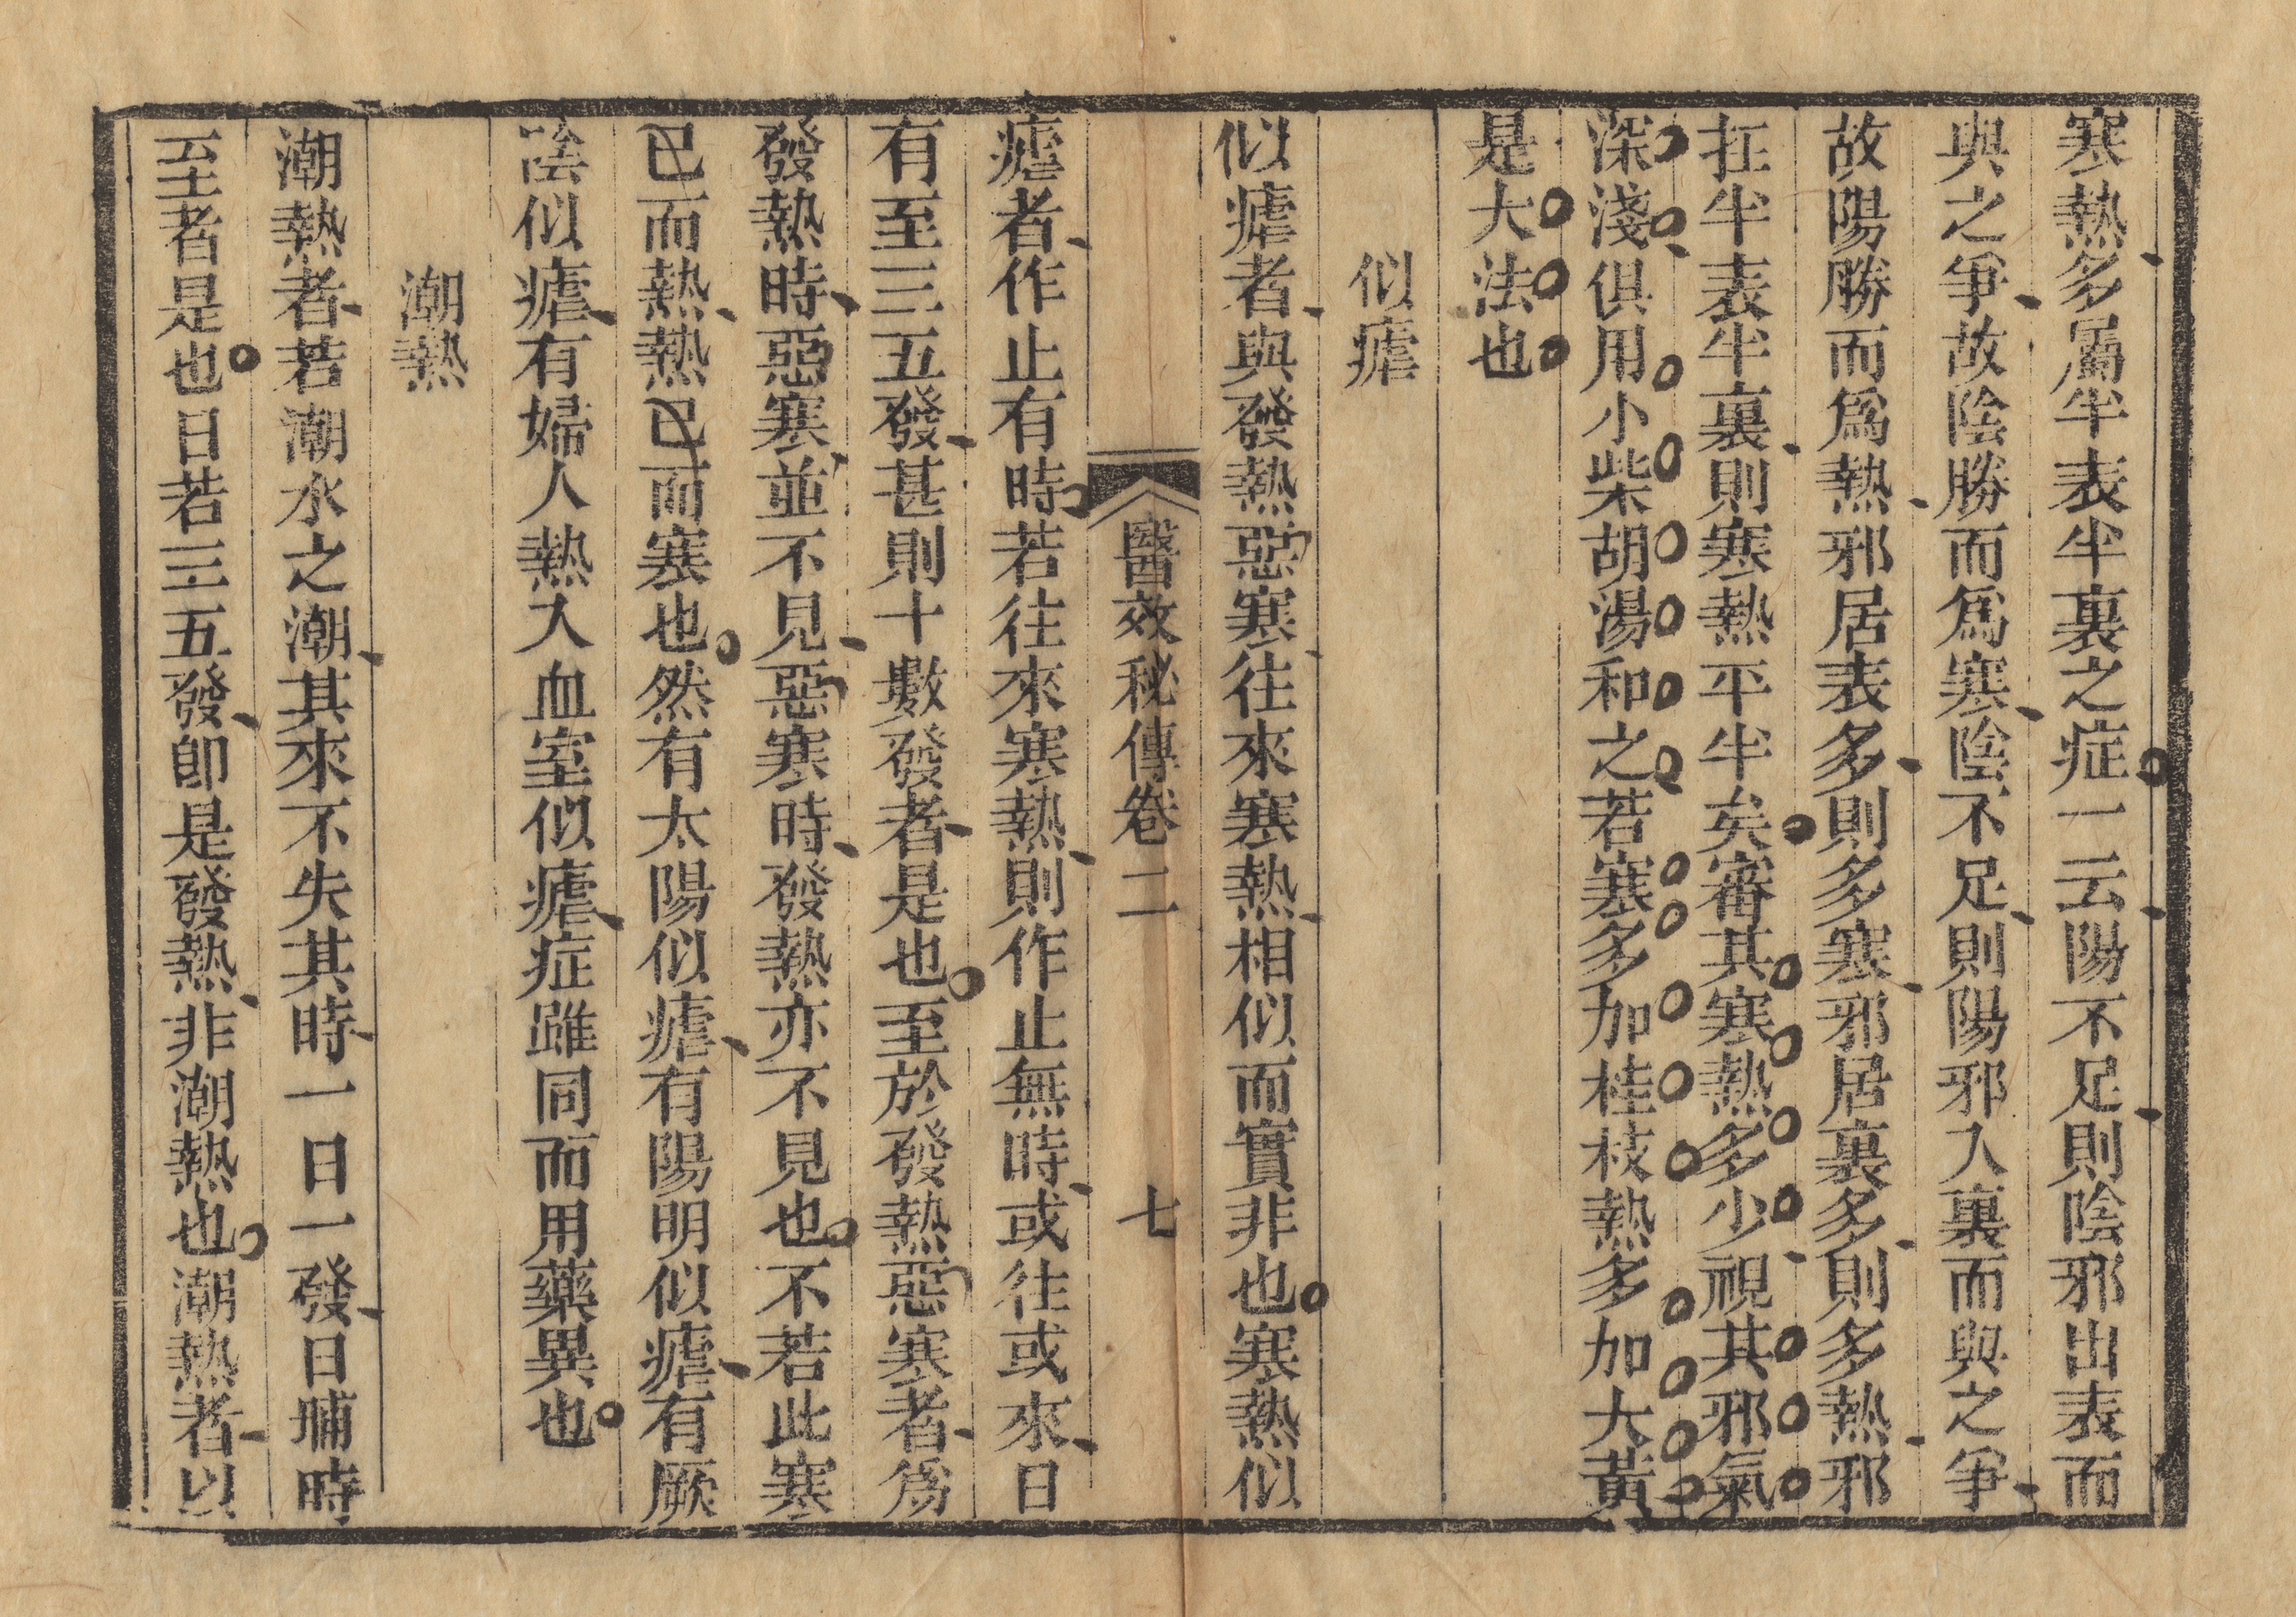 寒熱多屬半表半裏之症一云陽不足則陰邪出表而
與之爭故陰勝而爲寒陰不足則陽邪入裏而與之爭
故陽勝而爲熱邪居表多則多寒邪居裏多則多熱邪
在半表半裏則寒熱平半矣審其寒熱多少視其邪氣
深淺俱用小柴胡湯和之若寒多加桂枝熱多加大黃
是大法也
似瘧
似瘧者與發熱惡寒往來寒熱相似而實非也寒熱似
醫效秘傳卷二 七
瘧者作止有時若往來寒熱則作止無時或往或來日
有至三五發甚則十數發者是也至於發熱惡寒者爲
發熱時惡寒並不見惡寒時發熱亦不見也不若此寒
已而熱熱已而寒也然有太陽似瘧有陽明似瘧有厥
陰似瘧有婦人熱入血室似瘧症雖同而用藥異也
潮熱
潮熱者若潮水之潮其來不失其時一日一發日晡時
至者是也日若三五發卽是發熱非潮熱也潮熱者以